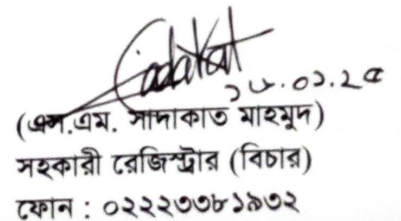 Sadakat
১৮.০১.২৫
(এস.এম. সাদাকাত মাহমুদ)
সহকারী রেজিস্ট্রার (বিচার)
ফোন : ০২২২৩৩৮১৯৩২